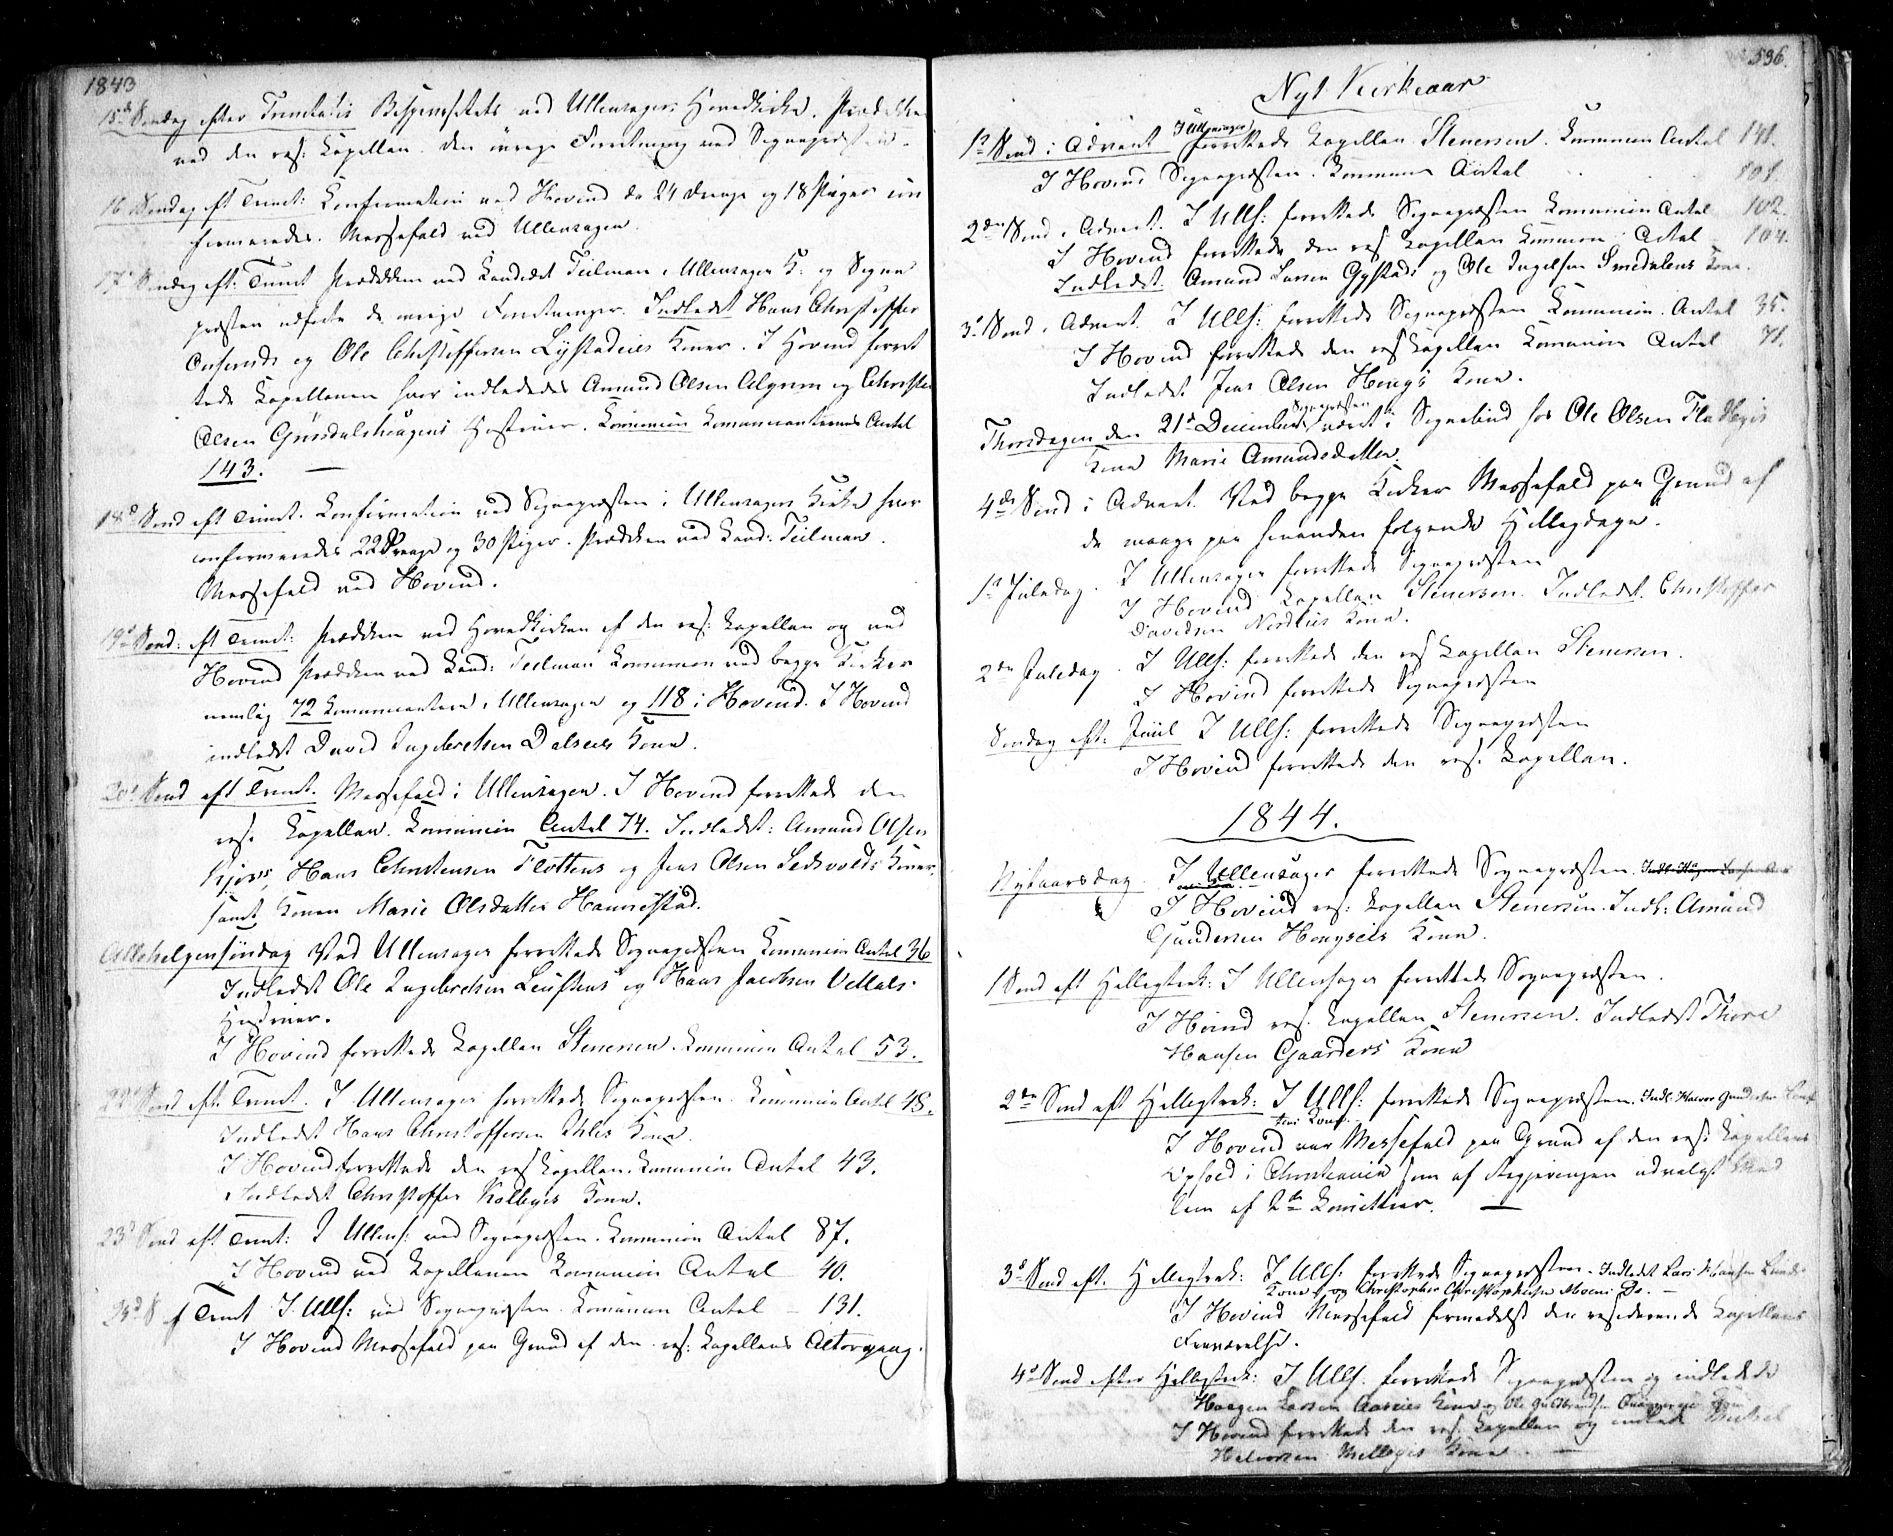 1843
15d Søndag efter Trinitatis Bispevisitats ved Ullensagers Hovedkirke. Prædiken
ved den res: Kapellan. Den øvrige Forretning ved Sognepræsten.
16 Søndag eft Trinit: Confirmation ved Hovind da 24 Drenge og 18 Piger con
firmeredes. Messefald ved Ullensager.
17d Søndag eft: Trinit Prædiken ved Candidat Teilman i Ullensager K: og Sogne
præsten udførte de øvrige Forretninger. Indledet Hans Christoffer
og Ole Christoffersen Lystadeies Koner. I Hovind forret
tede Kapellanen hvor indledede Amund Olsen Algrim og Christen
Olsen Hustruer. Comunion Communicanternes Antal
143.
18d Sønd eft Trinit. Confirmation ved Sognepræsten i Ullensagers Kirke hvor
confirmeredes 22 Drenge og 30 Piger. Prædiken ved Cand: Teilman.
Messefald ved Hovind.
19d Sønd: eft Trinit: Prædiken ved Hovedkirken af den res: Kapellan og ved
Hovind Prædiken ved Cand: Teilman Communion ved begge Kirker
nemlig 72 Communicantere i Ullensager og 118 i Hovind. I Hovind
indledt David Ingebretsen Dalseies Kone.
20d Sønd eft Trinit. Messefald i Ullensager. I Hovind forrettede den
res: Kapellan. Comunion Antal 74. Indledet: Amund Olsen
Kjos, Hans Christensen Flottens og Jens Olsen Koner,
samt Konen Marie Olsdatter Haunestad.
Allehelgensøndag Ved Ullensager forrettede Sognepræsten Comunion Antal 36
Indledet Ole Ingebretsen og Hans Jacobsen
Hustruer.
I Hovind forrettede Kapellan Stenersen. Comunion Antal 53.
22d Sønd eft. Trinit. I Ullensager forrettede Sognepræsten. Comunion Antal 48.
Indledet Hans Christoffersen Kone.
I Hovind forrettede den res Kapellan. Comunion Antal 43.
Indledet Christoffer Kolbyes Kone.
23d Sønd eft Trinit: I Ullens: ved Sognepræsten. Comunion Antal 87.
I Hovind ved Kapellanen Comunion Antal 40.
S f Trinit I Ulls: ved Sognepræsten. Comunion Antal – 131.
I Hovind Messefald paa Grund af den res: Kapellans Altergang.
596.
Nyt Kirkeaar
1d Sønd i Advent I Ullensager forrettede Kapellan Stenersen. Comunion Antal 141.
I Hovind Sognepræsten. Comunion Antal 101.
2den Sønd i Advent. I Ulls: forrettede Sognepræsten Comunion Antal 102.
I Hovind forrettede den res Kapellan Comunion Antal 104.
Indledet. Amund Larsen Gystads og Ole Smedalens Kone.
3d Sønd i Advent. I Ulls: forrettede Sognepræsten Comunion. Antal 35.
I Hovind forrettede den res Kapellan Comunion Antal 71.
Indledet Jens Olsen Kone.
Thorsdagen den 21d December Sognepræsten været i Sognebud hos Ole Olsen Fladbyes
Kone Marie Amundsdatter.
4de Sønd i Advent. Ved begge Kirker Messefald paa Grund af
de mange paa hinanden følgende Helligdage.
1d Juledag. I Ullensager forrettede Sognepræsten
I Hovind Kapellan Stenersen. Indledet. Christoffer
Davidsen Kone.
2den Juledag. I Ulls: forrettede den res Kapellan Stenersen.
I Hovind forrettede Sognepræsten
Søndag eft: Juul I Ulls: forrettede Sognepræsten
I Hovind forrettede den res. Kapellan.
1844.
Nytaarsdag. I Ullensager forrettede Sognepræsten.
I Hovind res: Kapellan Stenersen. Indl: Amund
Gundersen Kone.
1 Sønd eft Helligtrek: I Ullensager forrettede Sognepræsten.
I Hovind res. Kapellan Stenersen. Indledet Thore
Hansen Gaarders Kone
2den Sønd eft Helligtrek: I Ulls: forrettede Sognepræsten. Indl. Halvor
Kone.
I Hovind var Messefald paa Grund af den res: Kapellans
Ophold i Christiania som af Regjeringen udvalgt Med
lem af Komitteer.
3d Sønd eft. Helligtrek: I Ulls: forrettede Sognepræsten. Indledet Lars Hansen
Kone og Christopher Christophersen Moens Do. –
I Hovind Messefald formedelst den residerende Kapellans
Fraværelse.
4d Sønd efter Helligtrek: I Ulls. forrettede Sognepræsten og indledede
Haagen Larsen Kone og Ole Guldbrandsen
I Hovind forrettede den res. Kapellan og
Halvorsen Kone.